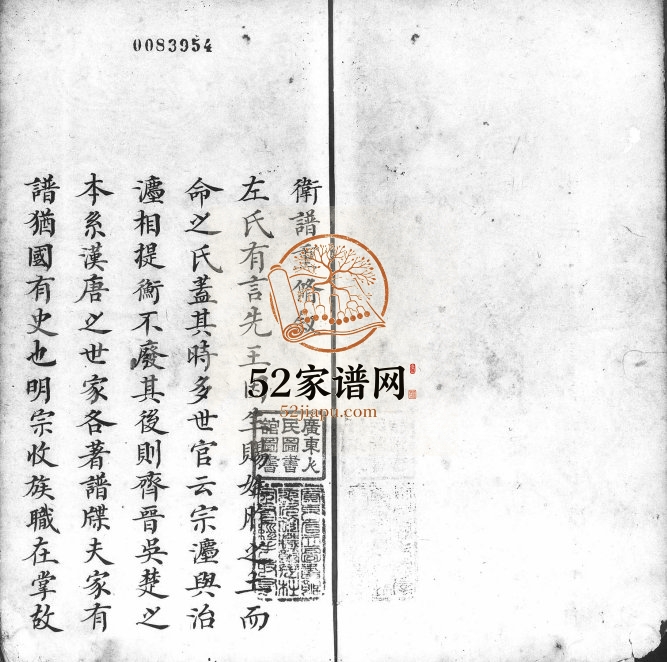 0083954
衛譜重脩敘
左氏有言先王因生賜姓胙之土而
命之氏蓋其時多世官云宗灋與治
灋相提衡不廢其後則齊晉吳楚之
本系漢唐之世家各著譜牒夫家有
譜猶國有史也明宗收族職在掌故
52家谱网
52jiapu.com
廣東人
民圖書
館圖書